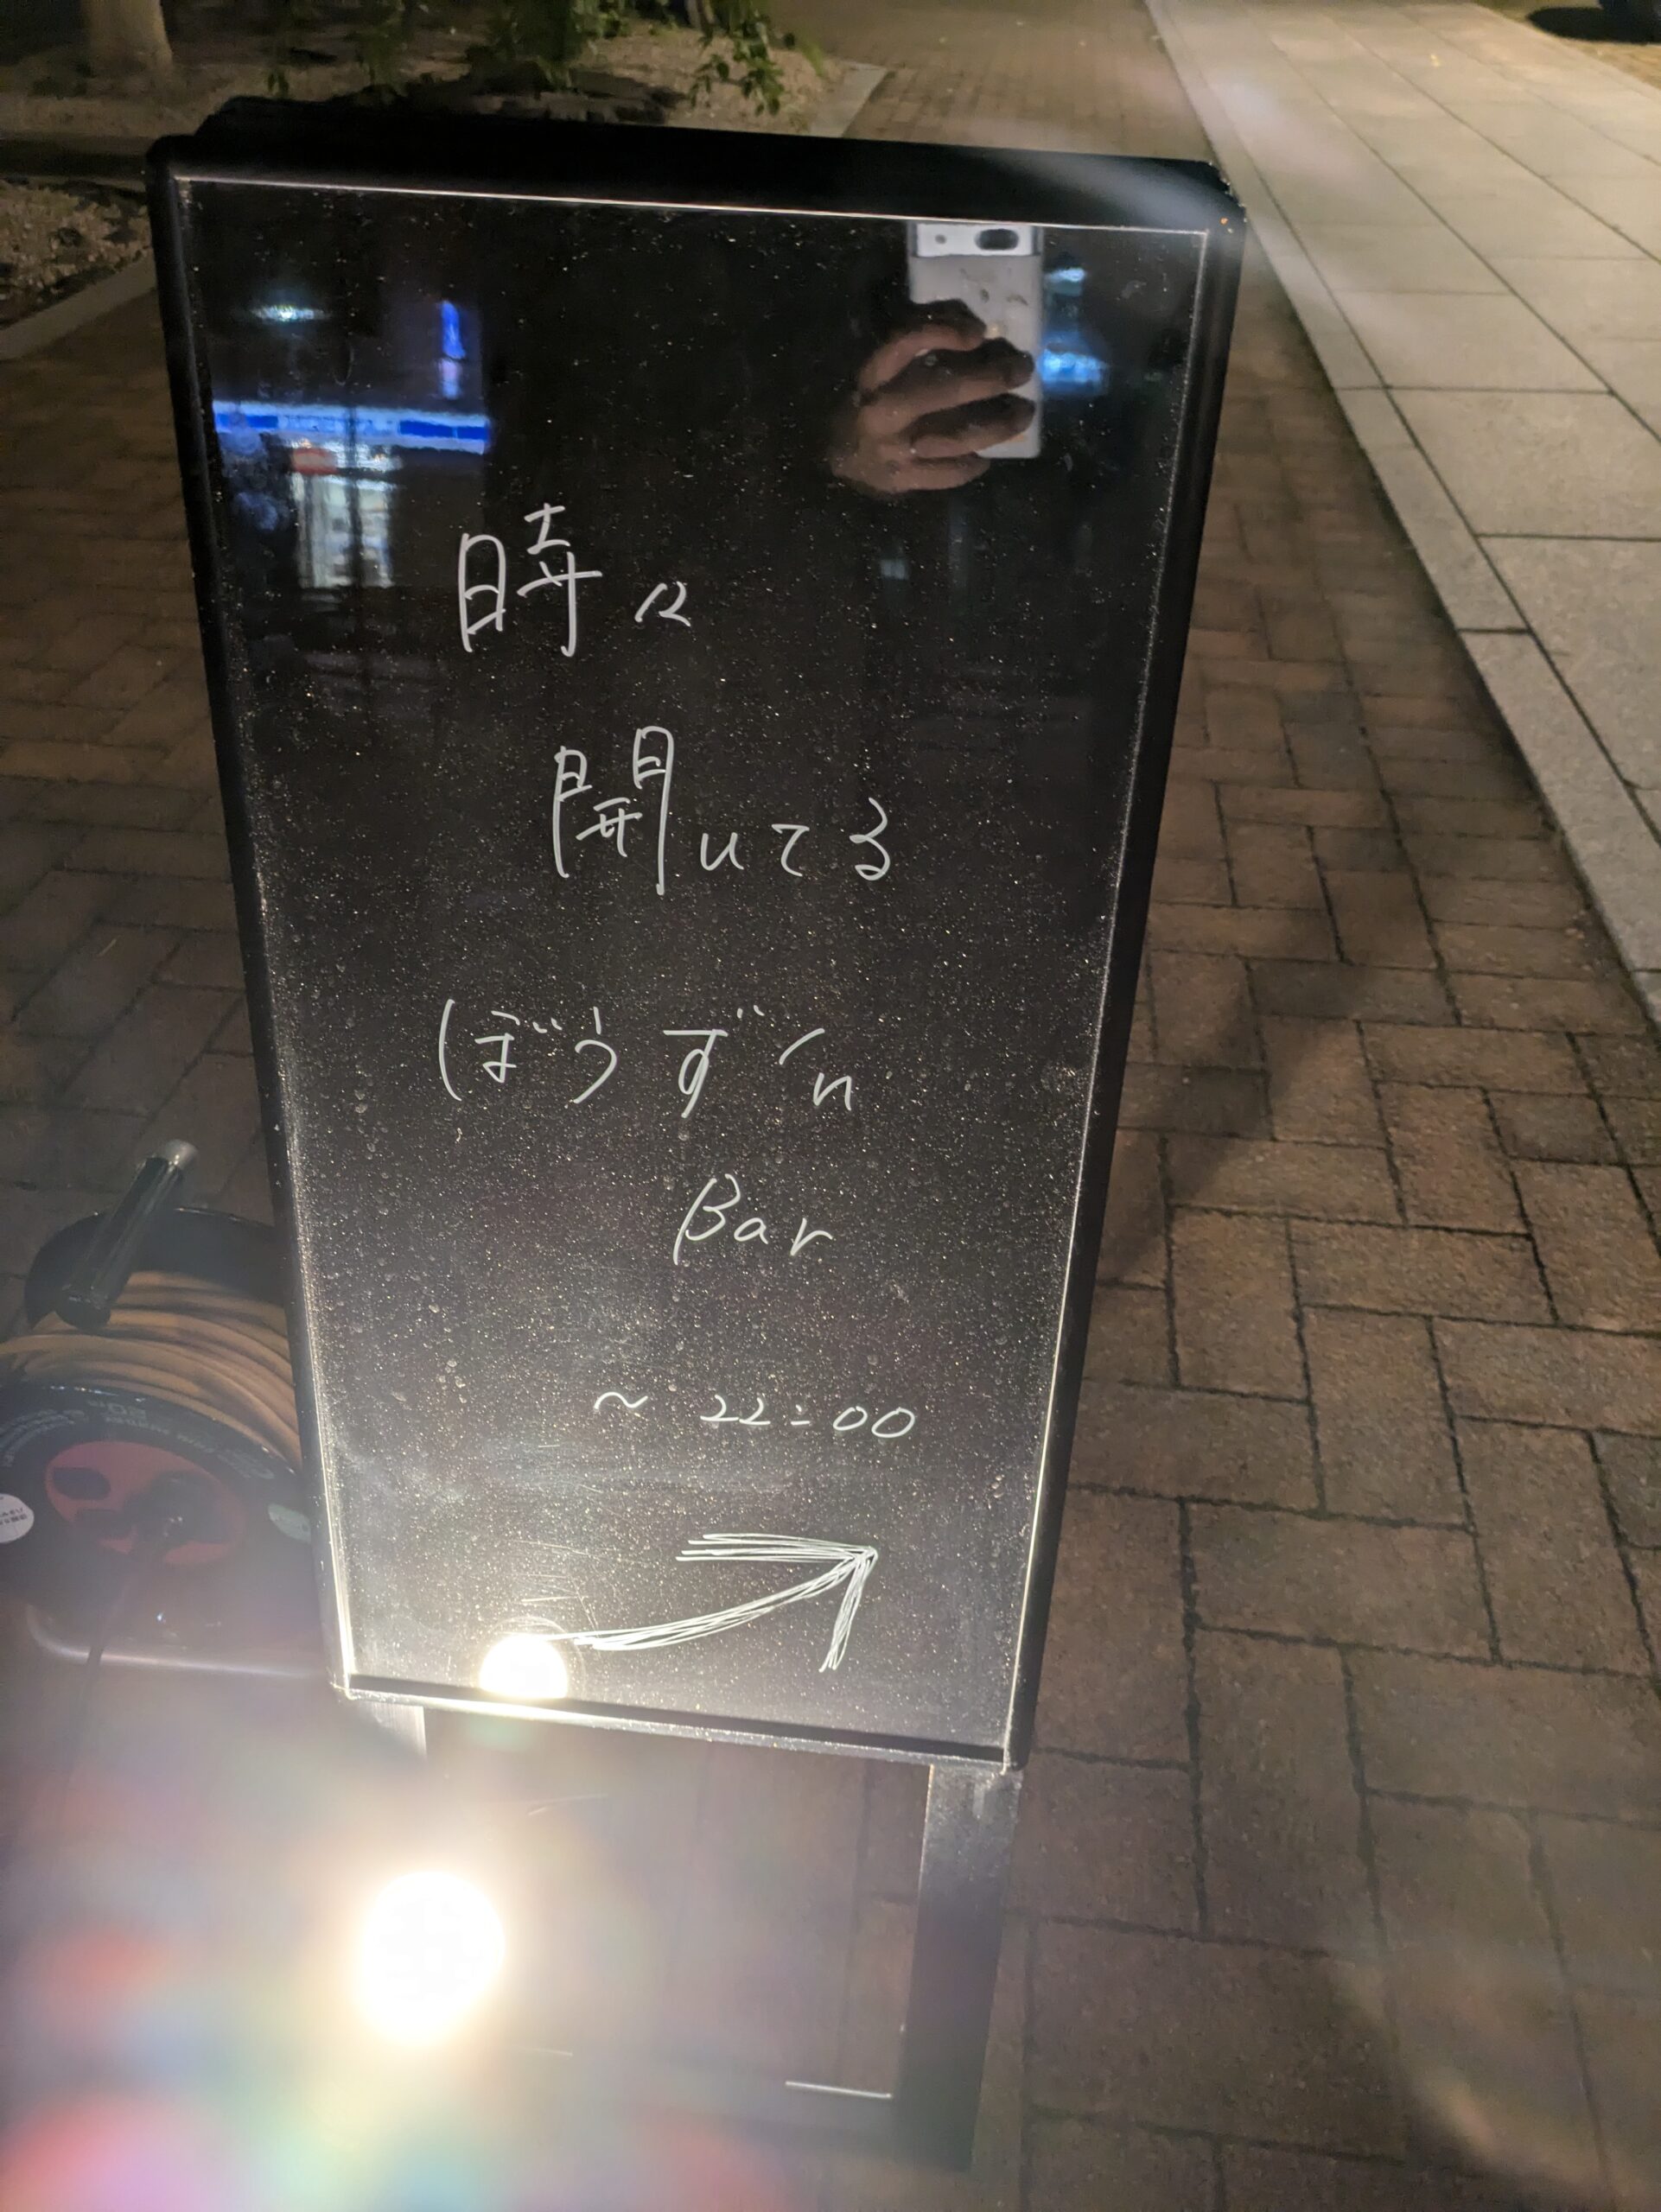 時々
開いてる
ぼうず'n
Bar
～ 22:00